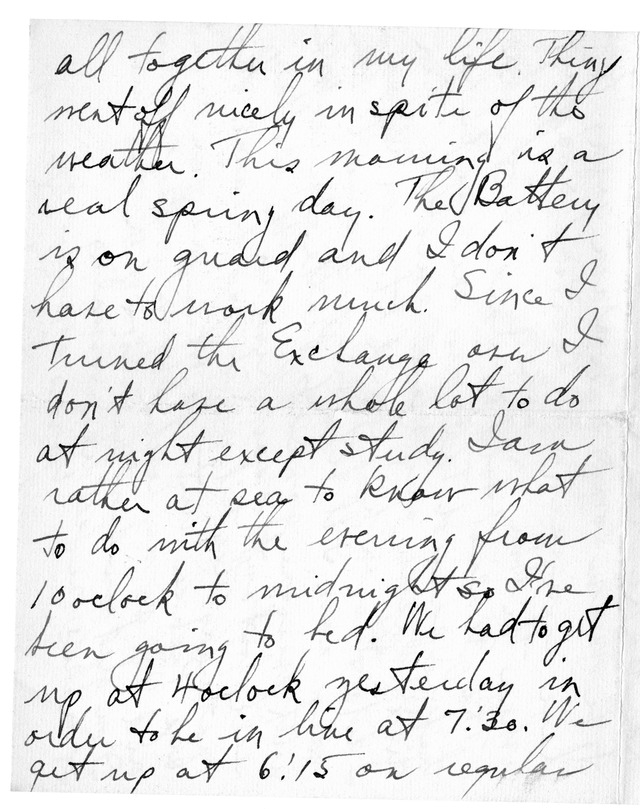 all together in my life. Things
went off nicely in spite of the
weather. This morning is a
real spring day. The Battery
is on guard and I don't
have to work much. Since I
turned the Exchange over I
don't have a whole lot to do
at night except study. I am
rather at sea to know what
to do with the evening from
10 oclock to midnight so I've
been going to bed. We had to get
up at 4 oclock yesterday in
order to be in line at 7:30. We
get up at 6:15 on regular